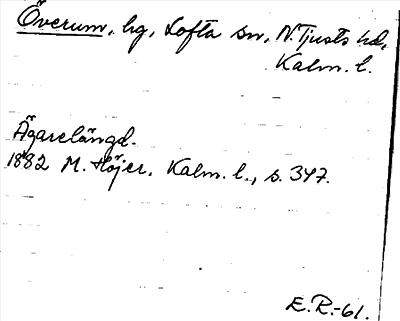 Överum, hg, Lofta sn, N. Tjusts hd,
Kalm. l.
Ägarelängd.
1882 M. Höjer, Kalm. l., s. 347.
E.R.-61.